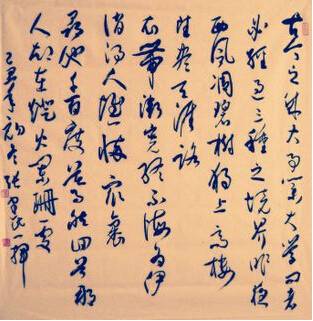 古今之成大事業大學問者
必經過三種之境界昨夜
西風凋碧樹獨上高樓
望盡天涯路
衣帶漸寬終不悔為伊
消得人憔悴眾裏
尋他千百度驀然回首那
人卻在燈火闌珊處
己丑年初冬張